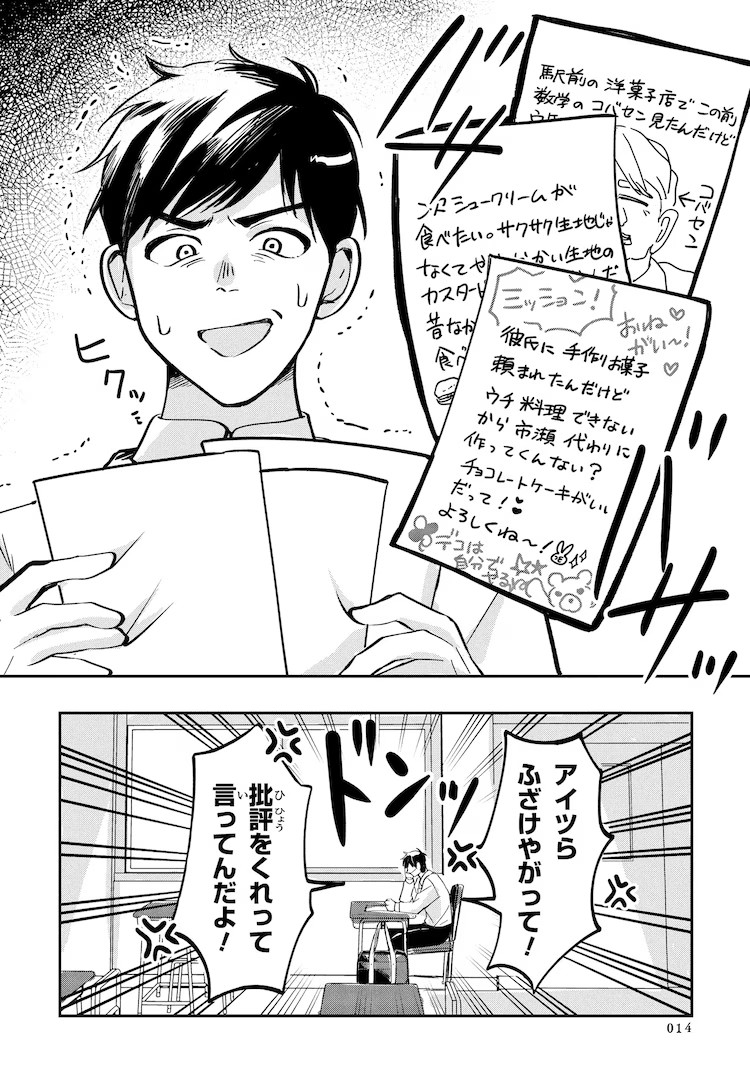 駅前の洋菓子店でこの前
数学のコバセン見たんだけど
コバセン
シュークリームが
食べたい。サクサク生地じゃ
なくてや かい生地の
カスター
昔なが
食べ
ミッション!
おねがい〜!
彼氏に手作りお菓子
頼まれたんだけど
ウチ料理できない
から市瀬代わりに
作ってくんない?
チョコレートケーキがいい
だって!♥
よろしくね〜!
デコは
自分で
やるね
ヒクッ
アイツら
ふざけやがって!
ドンッ
批評をくれって
ひひょう
言ってんだよ!
い
014